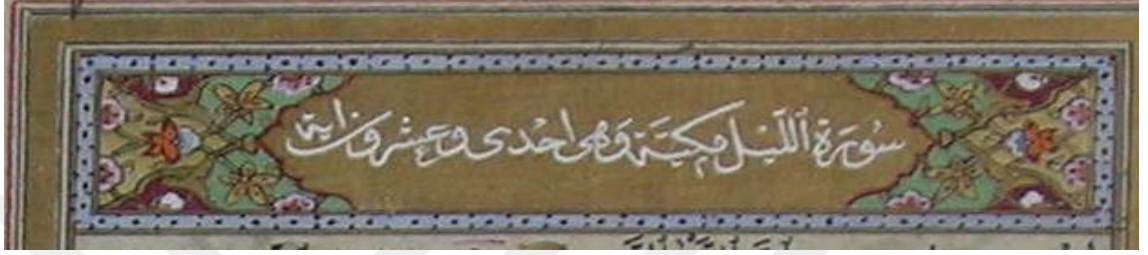 سُورَةُ اللَّيْلِ مَكِّيَّةٌ وَهِيَ احْدى وَعِشْرُونَ اية